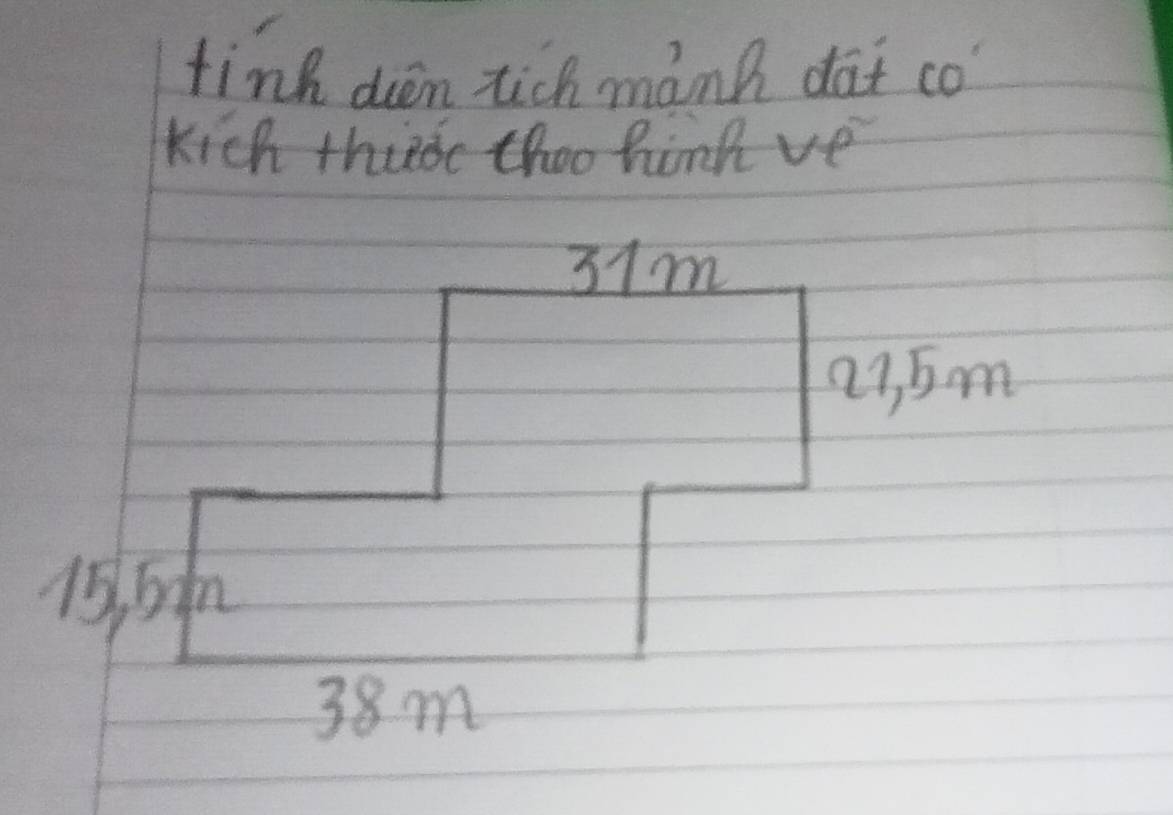 tính diên tich mảnh dất có
kích thước theo hình vẽ
31m
21,5m
15,5m
38m